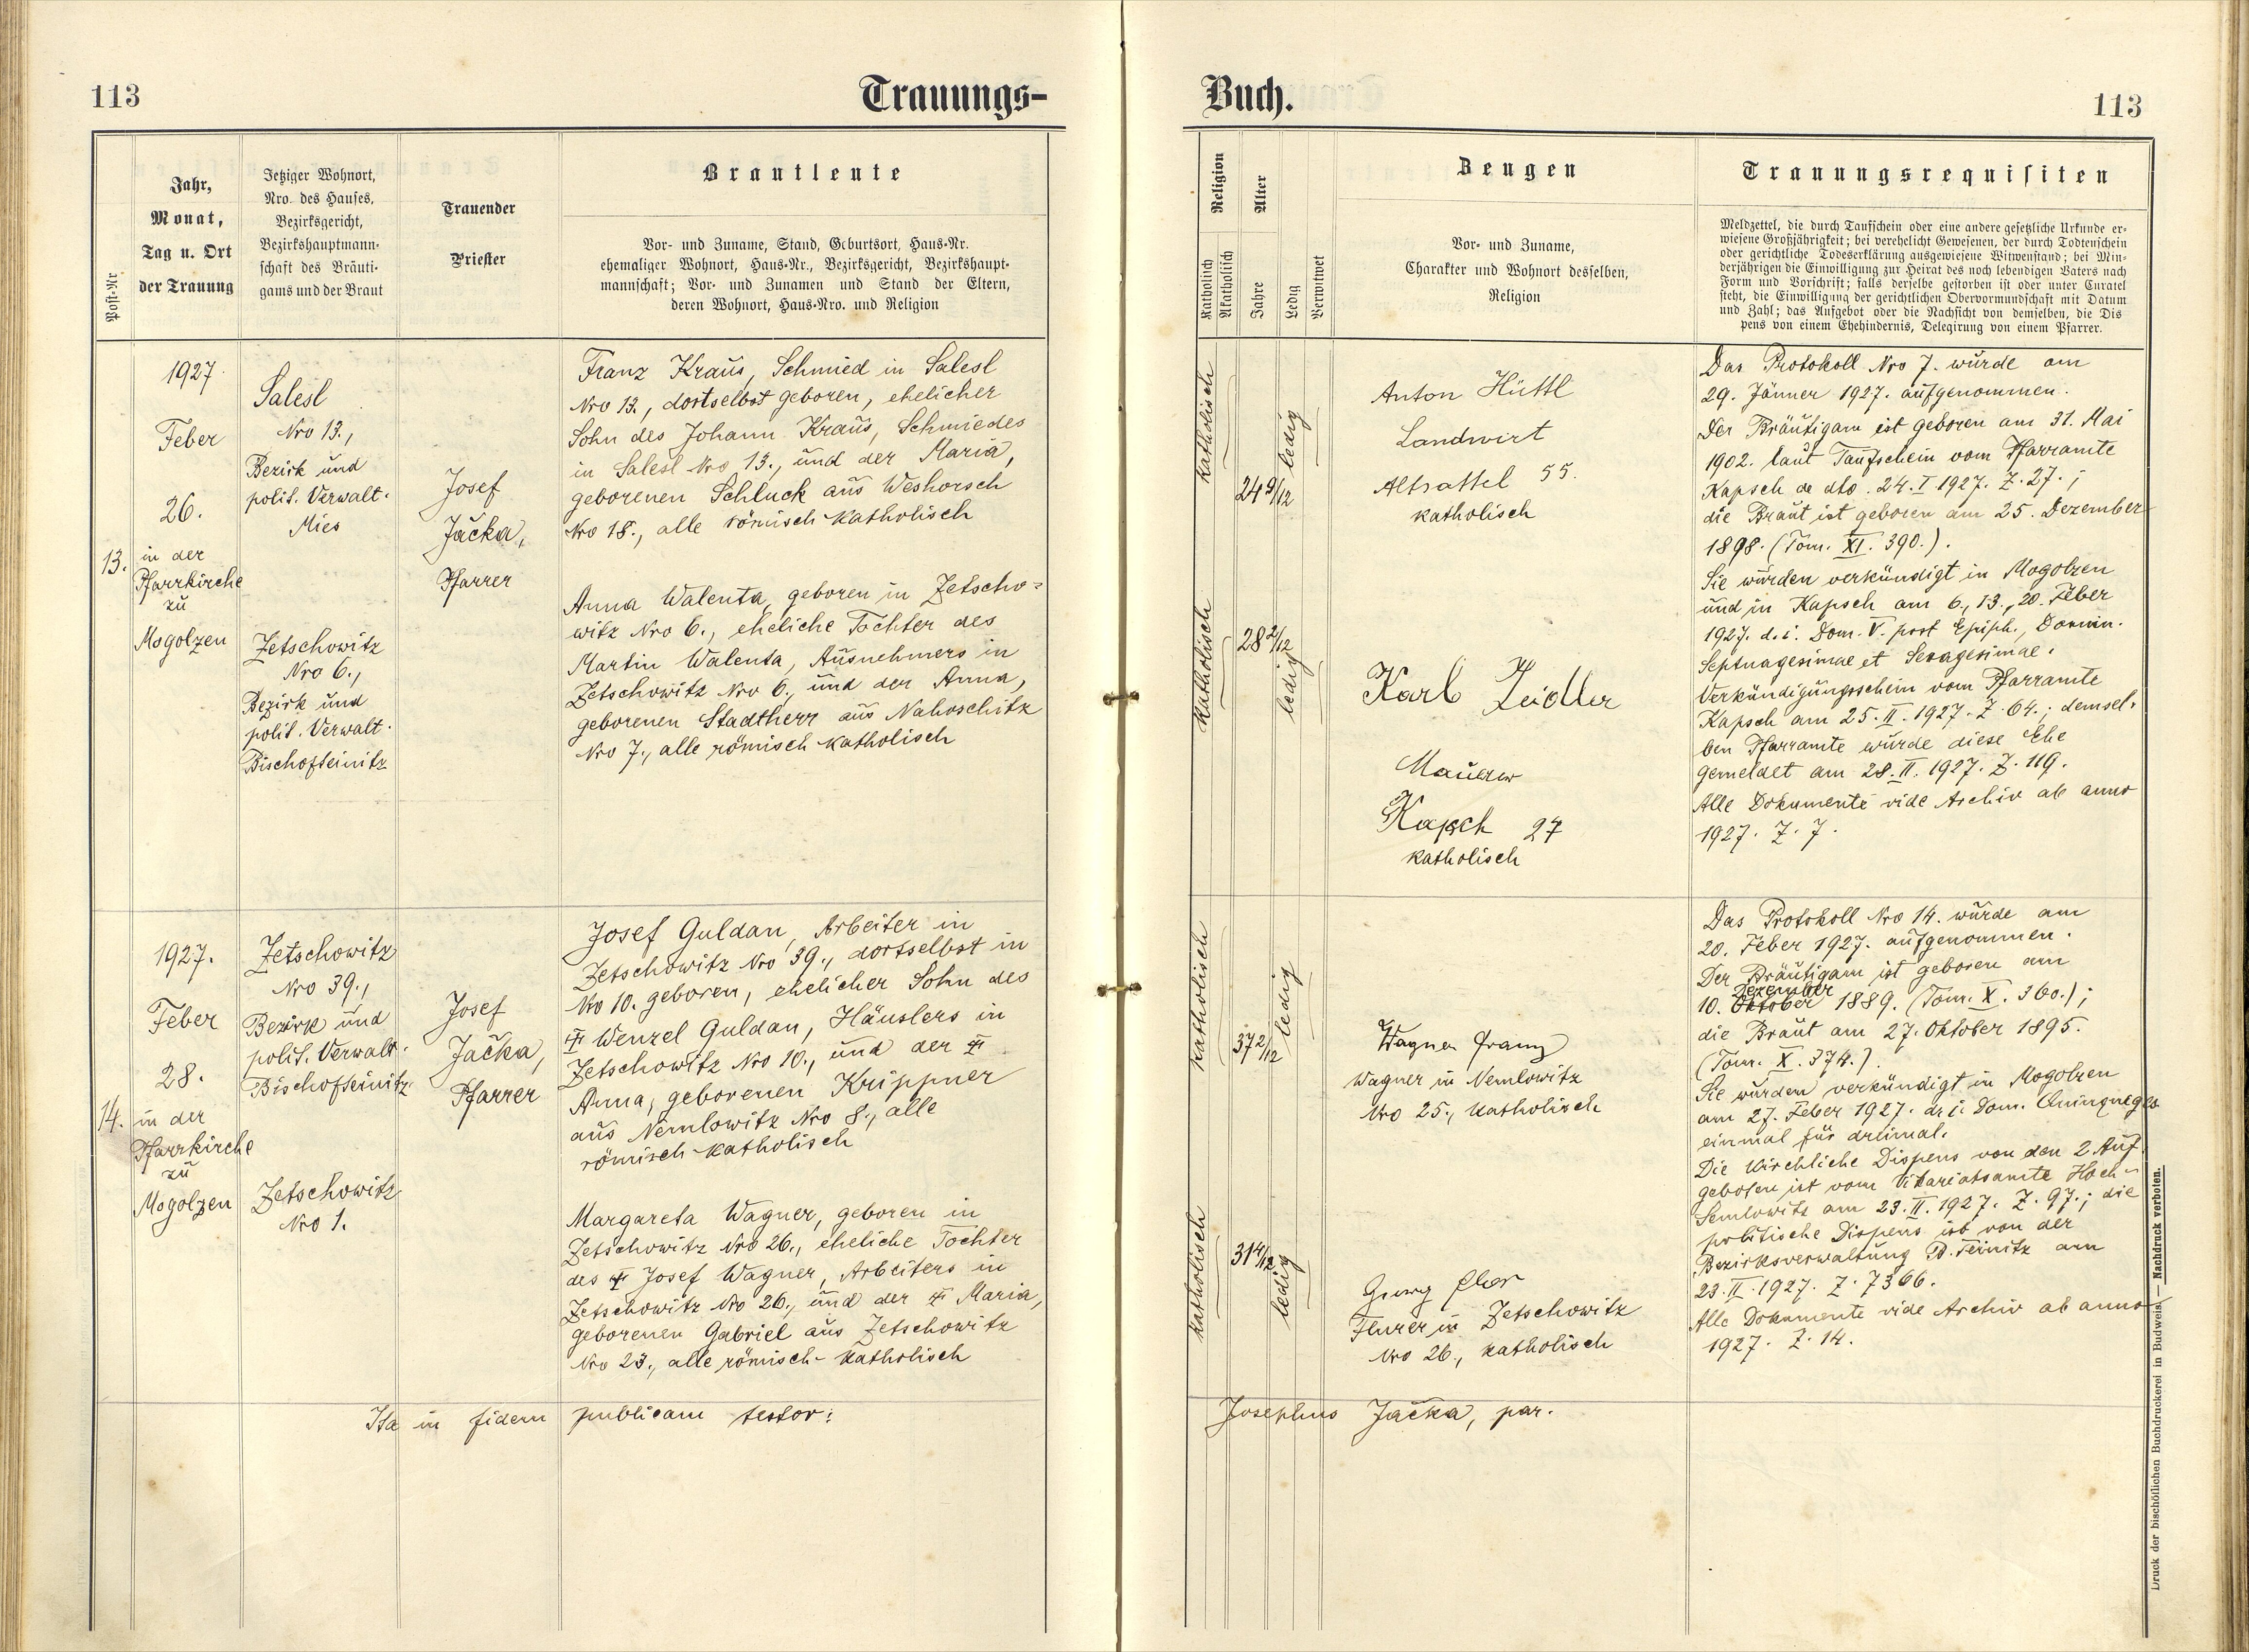 113
Trauungs-
Post-Nr
Jahr,
Monat,
Tag u. Ort
der Trauung
Jetziger Wohnort,
Nro. des Hauses,
Bezirksgericht,
Bezirkshauptmann-
schaft des Bräuti-
gams und der Braut
Trauender
Priester
Brautleute
Vor- und Zuname, Stand, Geburtsort, Haus-Nr.
ehemaliger Wohnort, Haus-Nr., Bezirksgericht, Bezirkshaupt-
mannschaft; Vor- und Zunamen und Stand der Eltern,
deren Wohnort, Haus-Nro. und Religion
13.
1927
Feber
26.
in der
Pfarrkirche
zu
Mogolzen
Salesl
Nro 13.,
Bezirk und
polit. Verwalt.
Mies
Zetschowitz
Nro 6.,
Bezirk und
polit. Verwalt.
Bischofteinitz
Josef
Jačka,
Pfarrer
Franz Kraus, Schmied in Salesl
Nro 13., dortselbst geboren, ehelicher
Sohn des Johann Kraus, Schmiedes
in Salesl Nro 13., und der Maria,
geborenen Schluck aus Weshorsch
Nro 18., alle römisch-katholisch
Anna Walenta, geboren in Zetscho=
witz Nro 6., eheliche Tochter des
Martin Walenta, Ausnehmers in
Zetschowitz Nro 6., und der Anna,
geborenen Stadtherr aus Nahoschitz
Nro 7., alle römisch-katholisch
14.
1927.
Feber
28.
in der
Pfarrkirche
zu
Mogolzen
Zetschowitz
Nro 39.,
Bezirk und
polit. Verwalt.
Bischofteinitz
Zetschowitz
Nro 1.
Josef
Jačka,
Pfarrer
Josef Guldan, Arbeiter in
Zetschowitz Nro 39., dortselbst in
Nro 10. geboren, ehelicher Sohn des
✝ Wenzel Guldan, Häuslers in
Zetschowitz Nro 10., und der ✝
Anna, geborenen Krippner
aus Nemlowitz Nro 8., alle
römisch-katholisch
Margareta Wagner, geboren in
Zetschowitz Nro 26., eheliche Tochter
des ✝ Josef Wagner, Arbeiters in
Zetschowitz Nro 26., und der ✝ Maria,
geborenen Gabriel aus Zetschowitz
Nro 23., alle römisch-katholisch
Ita in fidem publicam testor:
Buch.
113
Religion
Katholisch
Akatholisch
Alter
Jahre
Ledig
Verwitwet
Zeugen
Vor- und Zuname,
Charakter und Wohnort desselben,
Religion
Trauungsrequisiten
Meldzettel, die durch Taufschein oder eine andere gesetzliche Urkunde er-
wiesene Großjährigkeit; bei verehelicht Gewesenen, der durch Todtenschein
oder gerichtliche Todeserklärung ausgewiesene Witwenstand; bei Min-
derjährigen die Einwilligung zur Heirat des noch lebendigen Vaters nach
Form und Vorschrift; falls derselbe gestorben ist oder unter Curatel
steht, die Einwilligung der gerichtlichen Obervormundschaft mit Datum
und Zahl; das Aufgebot oder die Nachsicht von demselben, die Dis
pens von einem Ehehindernis, Delegirung von einem Pfarrer.
katholisch
24 9/12
ledig
katholisch
28 2/12
ledig
Anton Hüttl
Landwirt
Altsattel 55.
katholisch
Karl Zeidler
Maurer
Kapsch 27
katholisch
Das Protokoll Nro 7. wurde am
29. Jänner 1927. aufgenommen.
Der Bräutigam ist geboren am 31. Mai
1902. laut Taufschein vom Pfarramte
Kapsch de dto. 24. I. 1927. Z. 27.;
die Braut ist geboren am 25. Dezember
1898. (Tom. XI. 390.).
Sie wurden verkündigt in Mogolzen
und in Kapsch am 6., 13., 20. Feber
1927. d. i. Dom. V. post Epiph., Domin.
Septuagesimae et Sexagesimae.
Verkündigungsschein vom Pfarramte
Kapsch am 25. II. 1927. Z. 64.; demsel-
ben Pfarramte wurde diese Ehe
gemeldet am 28. II. 1927. Z. 119.
Alle Dokumente vide Archiv ab anno
1927. Z. 7.
katholisch
37 2/12
ledig
katholisch
31 4/12
ledig
Wagner Franz
Wagner in Nemlowitz
Nro 25., katholisch
Georg
Flurer in Zetschowitz
Nro 26., katholisch
Das Protokoll Nro 14. wurde am
20. Feber 1927. aufgenommen.
Der Bräutigam ist geboren am
Dezember
10. Oktober 1889. (Tom. X. 360.);
die Braut am 27. Oktober 1895.
(Tom. X. 374.).
Sie wurden verkündigt in Mogolzen
am 27. Feber 1927. d. i. Dom. Quinquages
einmal für dreimal.
Die kirchliche Dispens von den 2 Auf-
geboten ist vom Vikariatsamte Hoch-
Semlowitz am 23. II. 1927. Z. 97.; die
politische Dispens ist von der
Bezirksverwaltung B. Teinitz am
23. II. 1927. Z. 7366.
Alle Dokumente vide Archiv ab anno
1927. Z. 14.
Josephus Jačka, par.
Druck der bischöflichen Buchdruckerei in Budweis. — Nachdruck verboten.